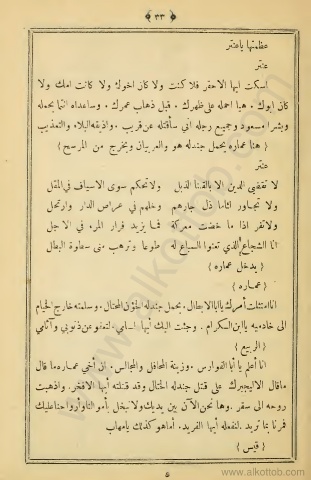 ﴿ ٣٣ ﴾
عظمتها ياعنتر
عنتر
اسكت ايها الاحقر فلا كنت ولا كان اخوك ولا كانت امك ولا
كان ابوك . هيا احمله على ظهرك . قبل ذهاب عمرك . وساعداه انتما بحمله
وبشرا مسعود وجميع رجله اني سأقتله عن قريب . واذيقه البلاء والتعذيب
{ هنا عماره يحمل جندله هو والعربيان ويخرج من المرسح }
عنتر
لا تقتضى الدين الا بالقنا الذبل ولا تحكم سوى الاسياف في المقل
ولا تجاور لئاما ذل جارهم وخلهم في عراص الدار وارتحل
ولا تفر اذا ما خضت معركة فما يزيد فرار المرء في الاجل
انا الشجاع الذي تعنوا السباع له طوعا وترهب مني سطوة البطل
{ يدخل عماره }
{ عماره }
انا امتثلت أمرك يا ابا الابطال . بحمل جندله الخؤن المحتال . وسلمته خارج الخيام
الى خادميه يا ابن الكرام . وجئت اليك أيها السامي . لتعفو عن ذنوبي وآثامي
{ الربيع }
انا أعلم يا أبا الفوارس . وزينة المحافل والمجالس . ان أخي عماره ما قال
ما قال الا ليجبرك على قتل جندله المختال وقد قتلته أيها الافخر . واذهبت
روحه الى سقر . وها نحن الآن بين يديك ولا نبخل بأموالنا وأرواحنا عليك
فمرنا بما تريد . لنفعله أيها الفريد . أما هو كذلك يا مهاب
{ قيس }
٥
www.alkottob.com
www.alkottob.com